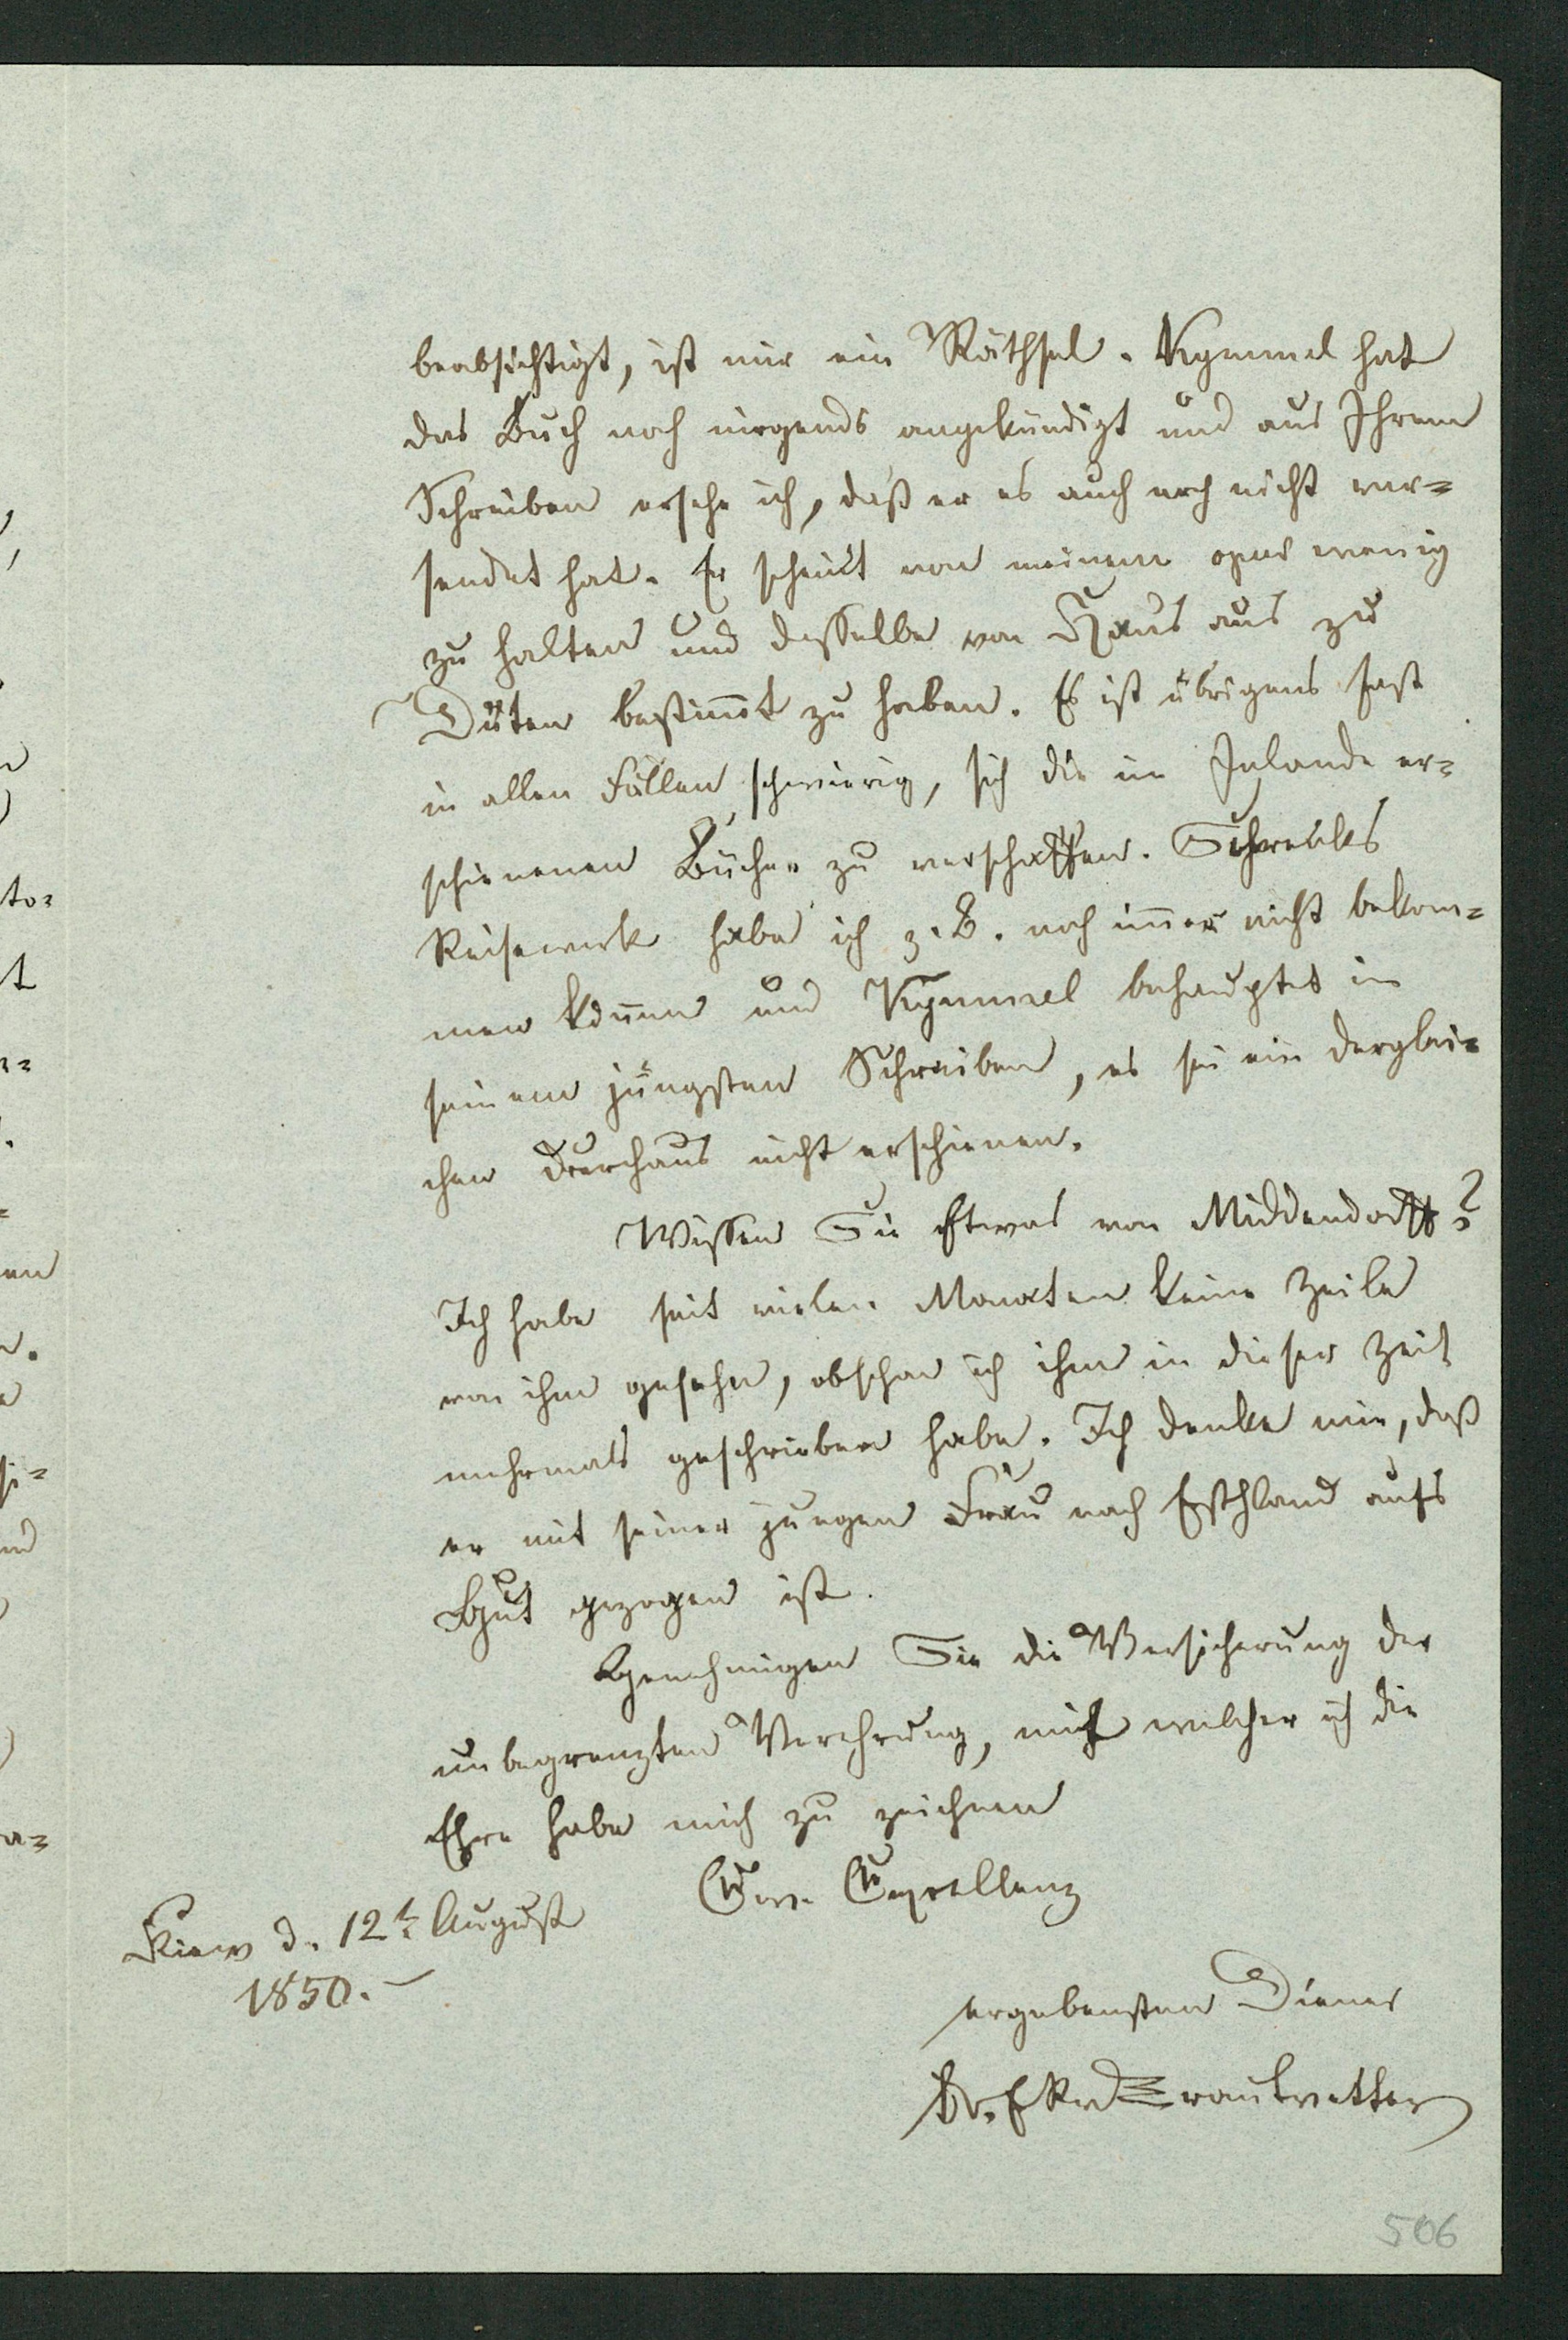 beabsichtigt, ist mir ein Räthsel. Kymmel hat
das Buch noch nirgends angekündigt und aus Ihrem
Schreiben ersehe ich, daß er es auch noch nicht ver=
sendet hat. Er scheint von meinem opus wenig
zu halten und dasselbe von Haus aus zu
Düten bestim̄t zu haben. Es ist übrigens fast
in allen Fällen schwierig, sich die im Inlande er=
schienenen Bücher zu verschaffen. Schrenks
Reisewerk habe ich z. B. noch im̄er nicht bekom=
men kön̄en und Kymmel behauptet in
seinem jüngsten Schreiben, es sei ein derglei=
chen durchaus nicht erschienen.
Wissen Sie Etwas von Middendorff?
Ich habe seit vielen Monaten keine Zeile
von ihm gesehn, obschon ich ihm in dieser Zeit
mehrmals geschrieben habe. Ich denke mir, daß
er mit seiner jungen Frau nach Esthland aufs
Gut gezogen ist.
Genehmigen Sie die Versicherung der
unbegrenzten Verehrung, mit welcher ich die
Ehre habe mich zu zeichnen
Ew. Excellenz
Kiew d. 12t. August
1850. –
ergebensten Diener
Dr. E R v Trautvetter
506